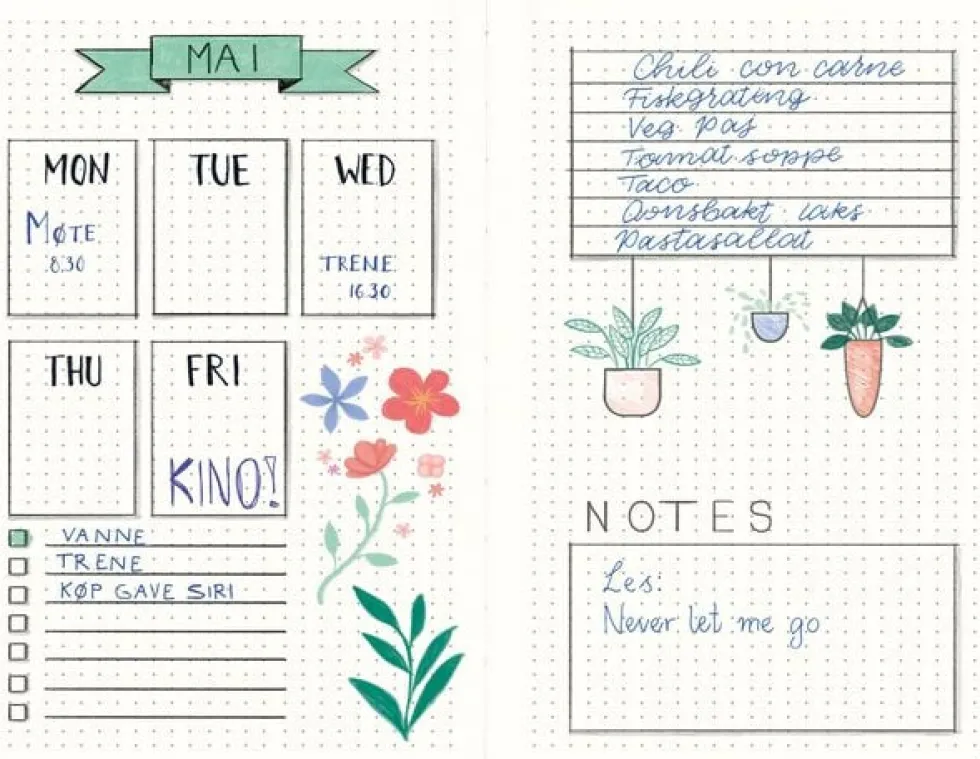 MAI
MON
TUE
WED
MØTE
8.30
TRENE
16.30
THU
FRI
KINO!
VANNE
TRENE
KØP GAVE SIRI
Chili con carne
Fiskegrateng
Veg. Paj
Tomat soppe
Taco
Ovnsbakt laks
Pastasallat
NOTES
Les:
Never let me go